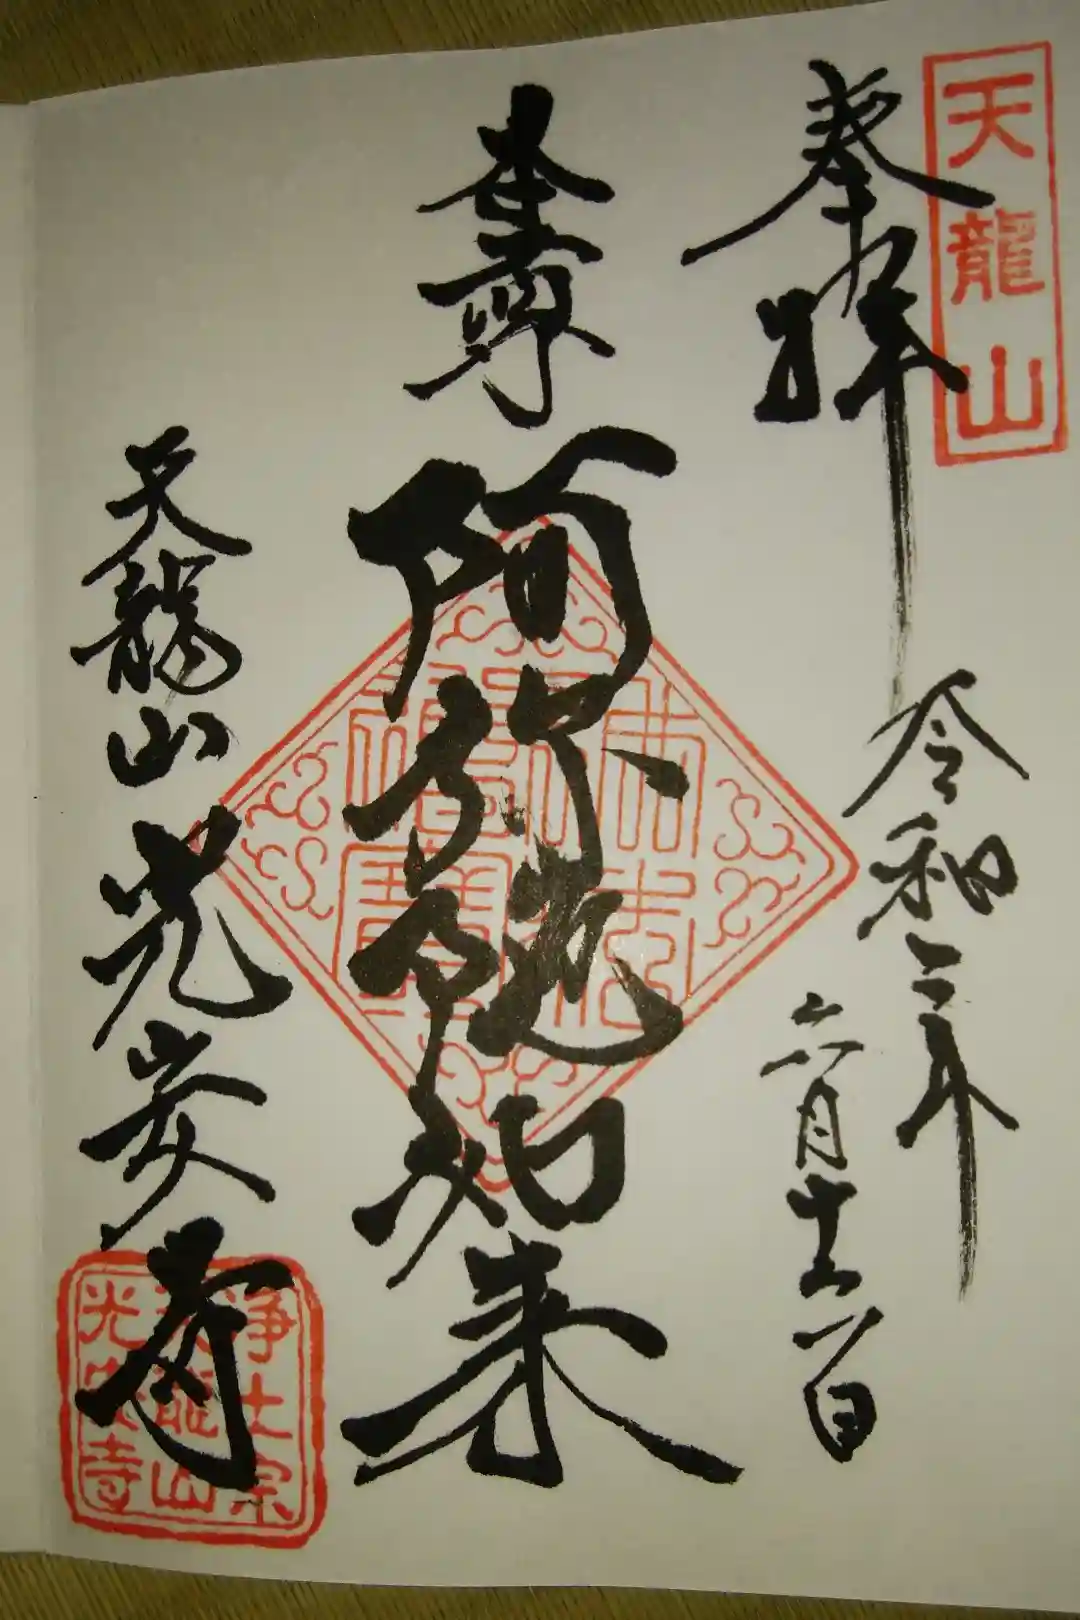 天龍山
奉拝
令和二年
六月十
日
本尊
阿弥陀如来
佛法
僧寶
天龍山
光安寺
浄土宗
天龍山
光安寺